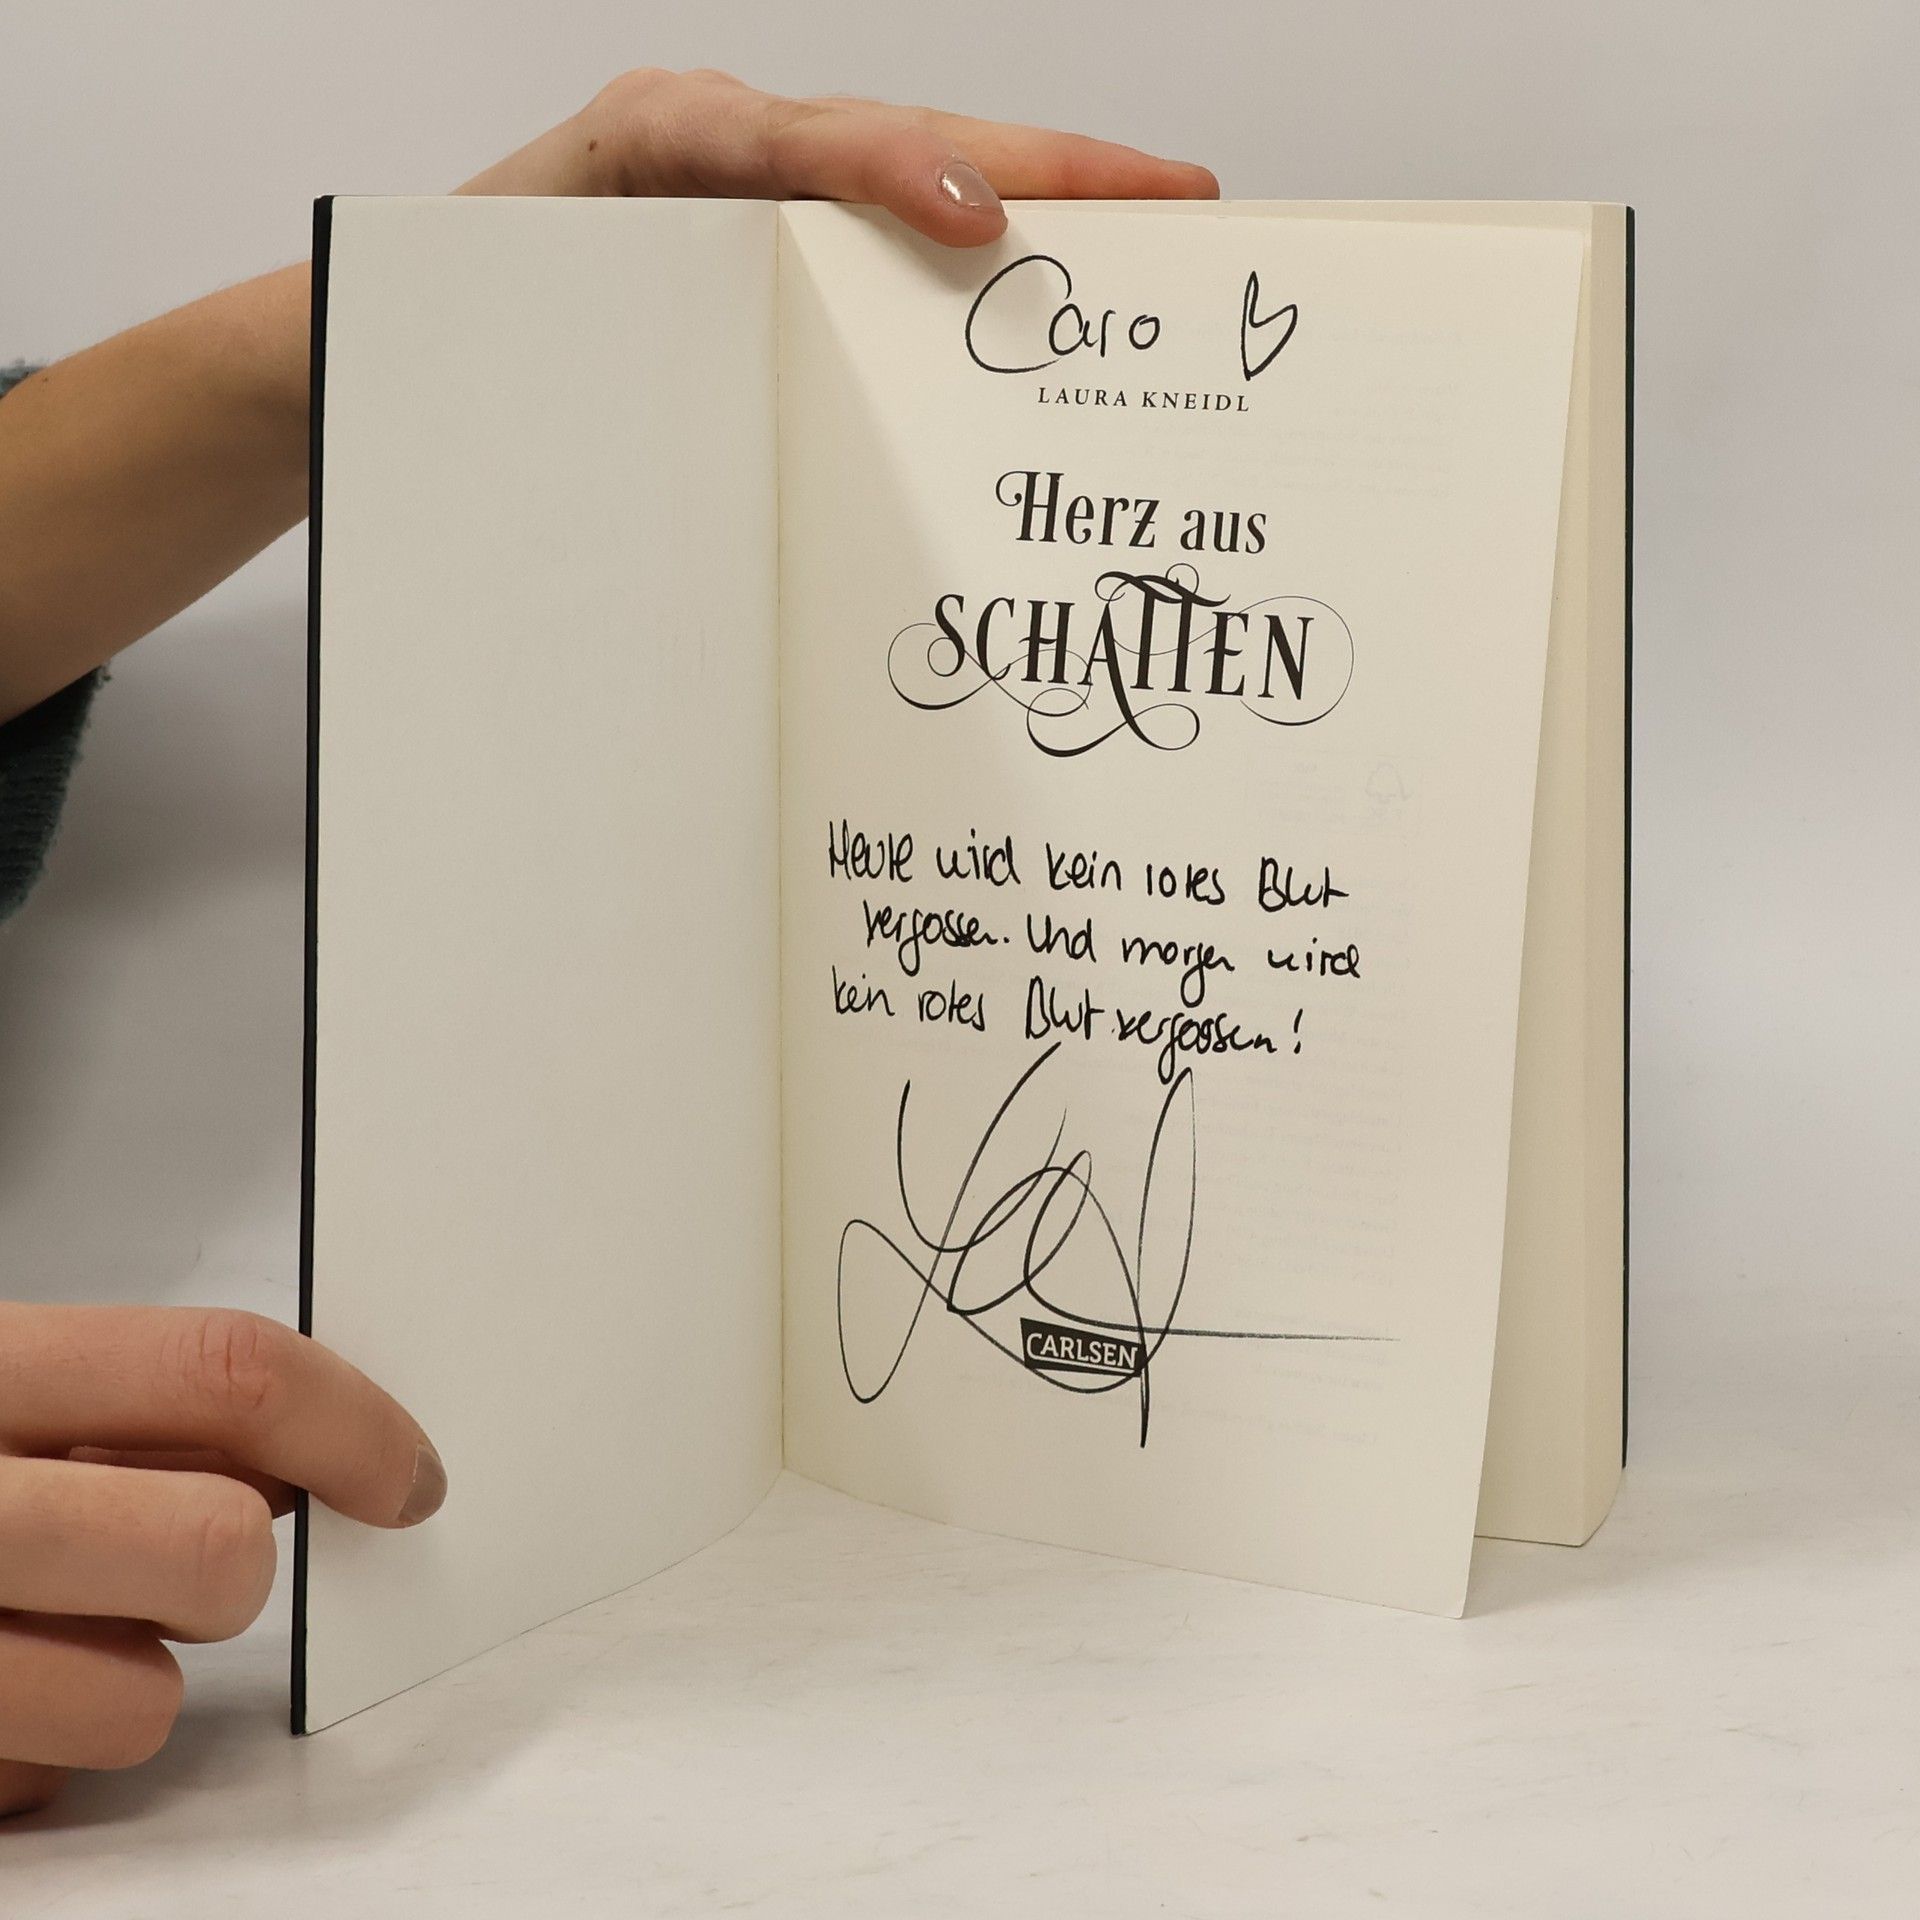 Caro
LAURA KNEIDL
Herz aus
SCHATTEN
Heute wird kein rotes Blut
vergossen. Und morgen wird
kein rotes Blut vergossen!
CARLSEN